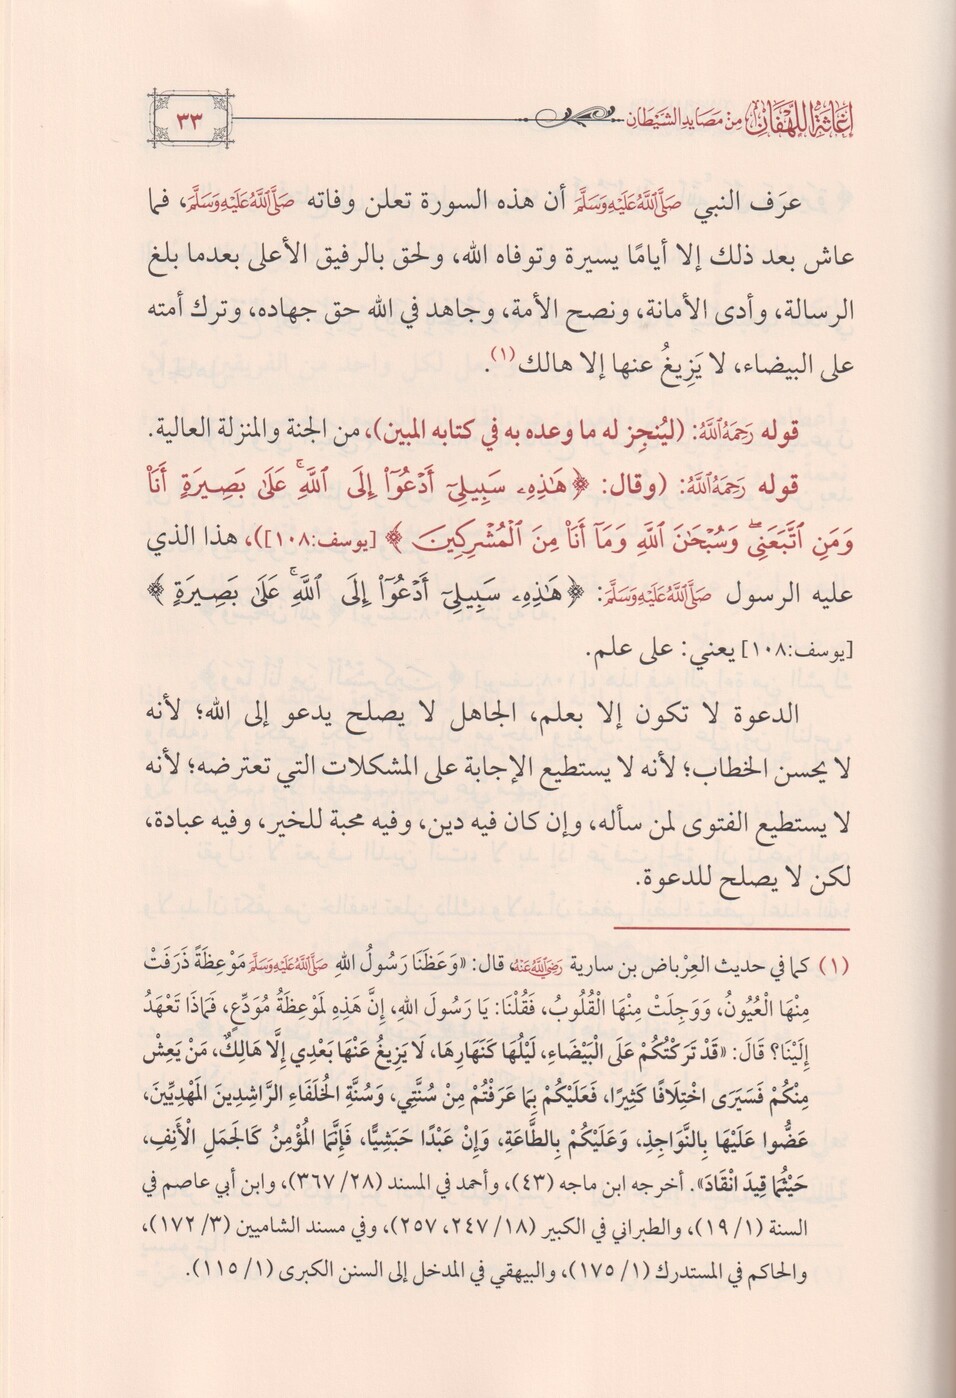 إغاثة اللهفان من مصايد الشيطان
٣٣
عرَف النبي صَلَّى ٱللَّهُ عَلَيْهِ وَسَلَّمَ أن هذه السورة تعلن وفاته صَلَّى ٱللَّهُ عَلَيْهِ وَسَلَّمَ، فما
عاش بعد ذلك إلا أيامًا يسيرة وتوفاه الله، ولحق بالرفيق الأعلى بعدما بلغ
الرسالة، وأدى الأمانة، ونصح الأمة، وجاهد في الله حق جهاده، وترك أمته
على البيضاء، لا يَزِيغُ عنها إلا هالك(١).
قوله رَحِمَهُ ٱللَّهُ: (ليُنجِز له ما وعده به في كتابه المبين)، من الجنة والمنزلة العالية.
قوله رَحِمَهُ ٱللَّهُ: (وقال: ﴿هَٰذِهِۦ سَبِيلِيٓ أَدۡعُوٓاْ إِلَى ٱللَّهِۚ عَلَىٰ بَصِيرَةٍ أَنَا۠
وَمَنِ ٱتَّبَعَنِيۖ وَسُبۡحَٰنَ ٱللَّهِ وَمَآ أَنَا۠ مِنَ ٱلۡمُشۡرِكِينَ﴾ [يوسف:١٠٨])، هذا الذي
عليه الرسول صَلَّى ٱللَّهُ عَلَيْهِ وَسَلَّمَ: ﴿هَٰذِهِۦ سَبِيلِيٓ أَدۡعُوٓاْ إِلَى ٱللَّهِۚ عَلَىٰ بَصِيرَةٍ﴾
[يوسف:١٠٨] يعني: على علم.
الدعوة لا تكون إلا بعلم، الجاهل لا يصلح يدعو إلى الله؛ لأنه
لا يحسن الخطاب؛ لأنه لا يستطيع الإجابة على المشكلات التي تعترضه؛ لأنه
لا يستطيع الفتوى لمن سأله، وإن كان فيه دين، وفيه محبة للخير، وفيه عبادة،
لكن لا يصلح للدعوة.
(١) كما في حديث العِرْباض بن سارية رَضِيَ ٱللَّهُ عَنْهُ، قال: «وَعَظَنَا رَسُولُ اللهِ صَلَّى ٱللَّهُ عَلَيْهِ وَسَلَّمَ مَوْعِظَةً ذَرَفَتْ
مِنْهَا الْعُيُونُ، وَوَجِلَتْ مِنْهَا الْقُلُوبُ، فَقُلْنَا: يَا رَسُولَ اللهِ، إِنَّ هَذِهِ لَمَوْعِظَةُ مُوَدِّعٍ، فَمَاذَا تَعْهَدُ
إِلَيْنَا؟ قَالَ: «قَدْ تَرَكْتُكُمْ عَلَى الْبَيْضَاءِ، لَيْلُهَا كَنَهَارِهَا، لَا يَزِيغُ عَنْهَا بَعْدِي إِلَّا هَالِكٌ، مَنْ يَعِشْ
مِنْكُمْ فَسَيَرَى اخْتِلَافًا كَثِيرًا، فَعَلَيْكُمْ بِمَا عَرَفْتُمْ مِنْ سُنَّتِي، وَسُنَّةِ الْخُلَفَاءِ الرَّاشِدِينَ الْمَهْدِيِّينَ،
عَضُّوا عَلَيْهَا بِالنَّوَاجِذِ، وَعَلَيْكُمْ بِالطَّاعَةِ، وَإِنْ عَبْدًا حَبَشِيًّا، فَإِنَّمَا الْمُؤْمِنُ كَالْجَمَلِ الْأَنِفِ،
حَيْثُمَا قِيدَ انْقَادَ». أخرجه ابن ماجه (٤٣)، وأحمد في المسند (٢٨/ ٣٦٧)، وابن أبي عاصم في
السنة (١/ ١٩)، والطبراني في الكبير (١٨/ ٢٤٧، ٢٥٧)، وفي مسند الشاميين (٣/ ١٧٢)،
والحاكم في المستدرك (١/ ١٧٥)، والبيهقي في المدخل إلى السنن الكبرى (١/ ١١٥).